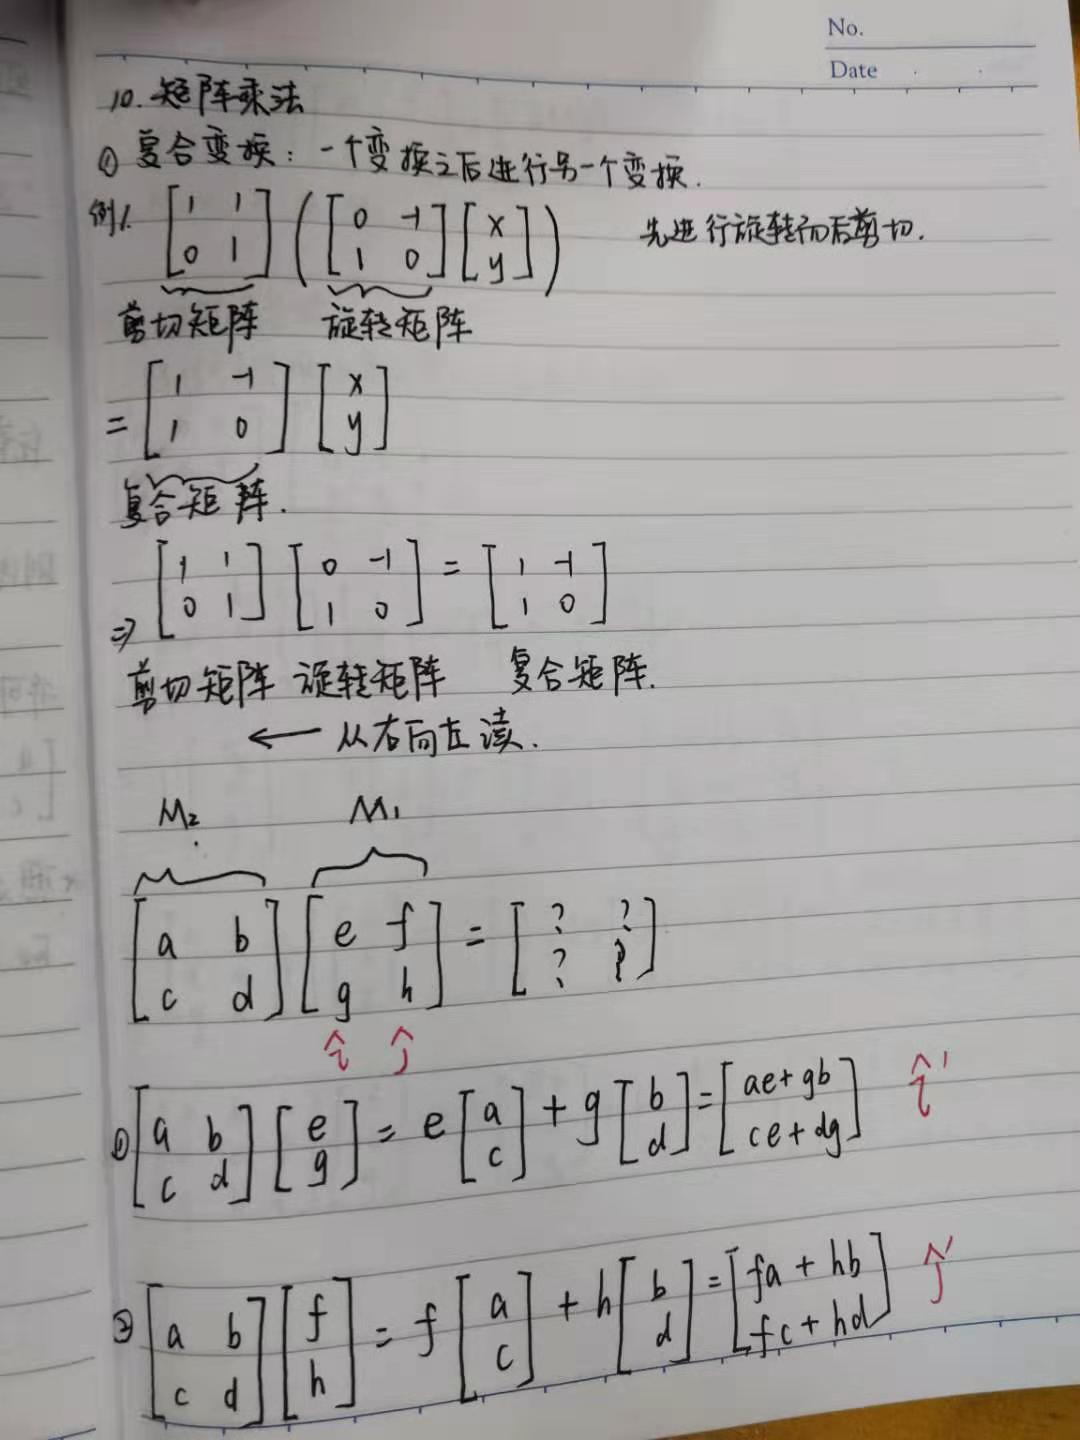 No.
Date
10. 矩阵乘法
① 复合变换：一个变换之后进行另一个变换.
例1. [1 1; 0 1] ( [0 -1; 1 0] [x; y] ) 先进行旋转而后剪切.
剪切矩阵 旋转矩阵
= [1 -1; 1 0] [x; y]
复合矩阵.
⇒ [1 1; 0 1] [0 -1; 1 0] = [1 -1; 1 0]
剪切矩阵 旋转矩阵 复合矩阵.
← 从右向左读.
M₂ M₁
[a b; c d] [e f; g h] = [? ?; ? ?]
î ĵ
① [a b; c d] [e; g] = e [a; c] + g [b; d] = [ae+gb; ce+dg] î'
② [a b; c d] [f; h] = f [a; c] + h [b; d] = [fa+hb; fc+hd] ĵ'